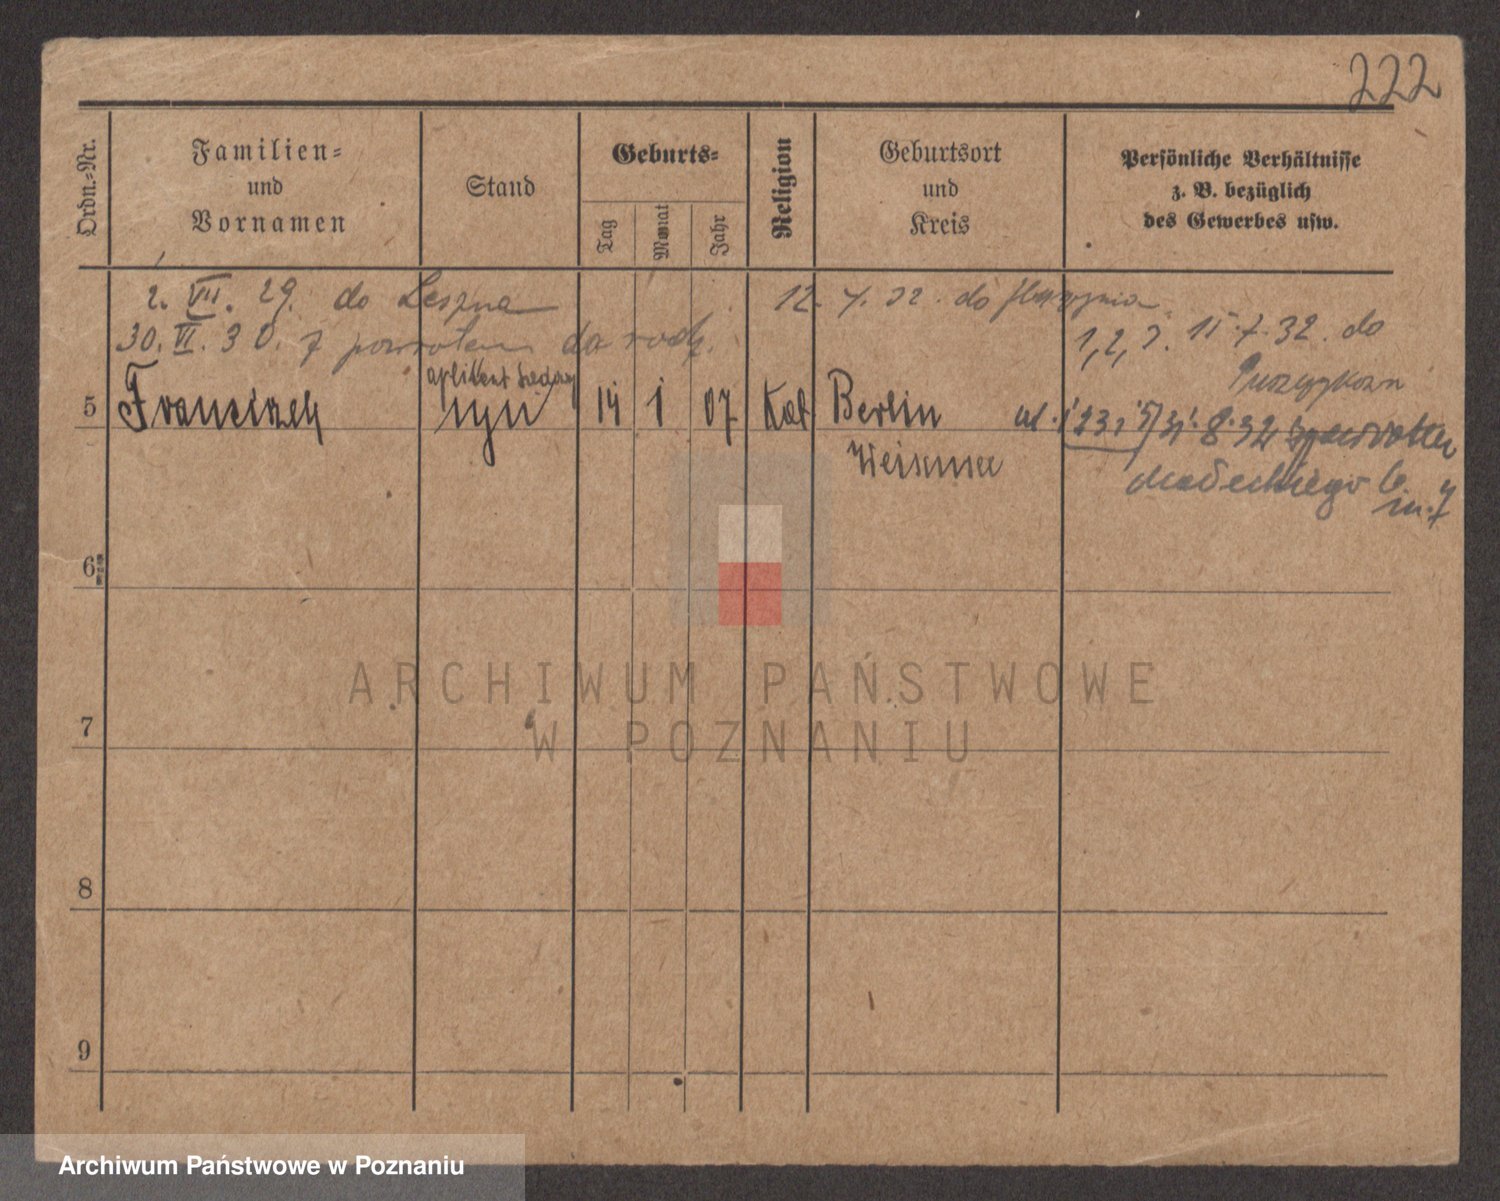 222
Ordn.-Nr.
Familien-
und
Vornamen
Stand
Geburts-
Tag
Monat
Jahr
Religion
Geburtsort
und
Kreis
Persönliche Verhältnisse
z. B. bezüglich
des Gewerbes usw.
2. VII. 29. do Leszna
12. 7. 32. do
30. VI. 30. z powrotem do rodz.
1, 2, 3. 15.7.32. do
5
Franciszek
aplikant sądowy
syn
14
1
07
Kat
Berlin
8.32
Weissensee
Małeckiego
m. 7
6
7
8
9
ARCHIWUM PAŃSTWOWE
W POZNANIU
Archiwum Państwowe w Poznaniu